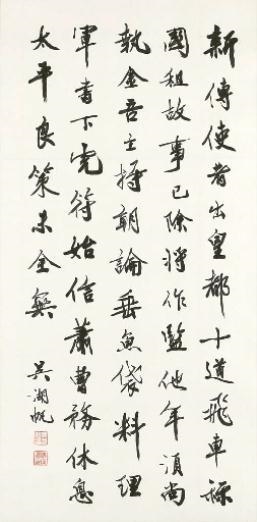 新傳使者出皇都十道飛車採
國租故事已除將作監他年須尚
執金吾主持朝論垂魚袋料理
軍書下虎符始信蕭曹務休息
太平良策未全無
吳湖帆